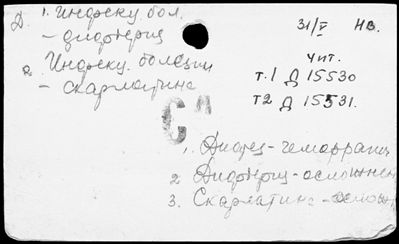 Д. 1. Инфекц. бол.
- дифтерия
2. Инфекц. болезни
- скарлатина
31/V НВ.
Чит.
т.1 Д 15530
т2 Д 15531.
1. Диатез - геморрагич
2 Дифтерия - осложнен
3. Скарлатина - осложн